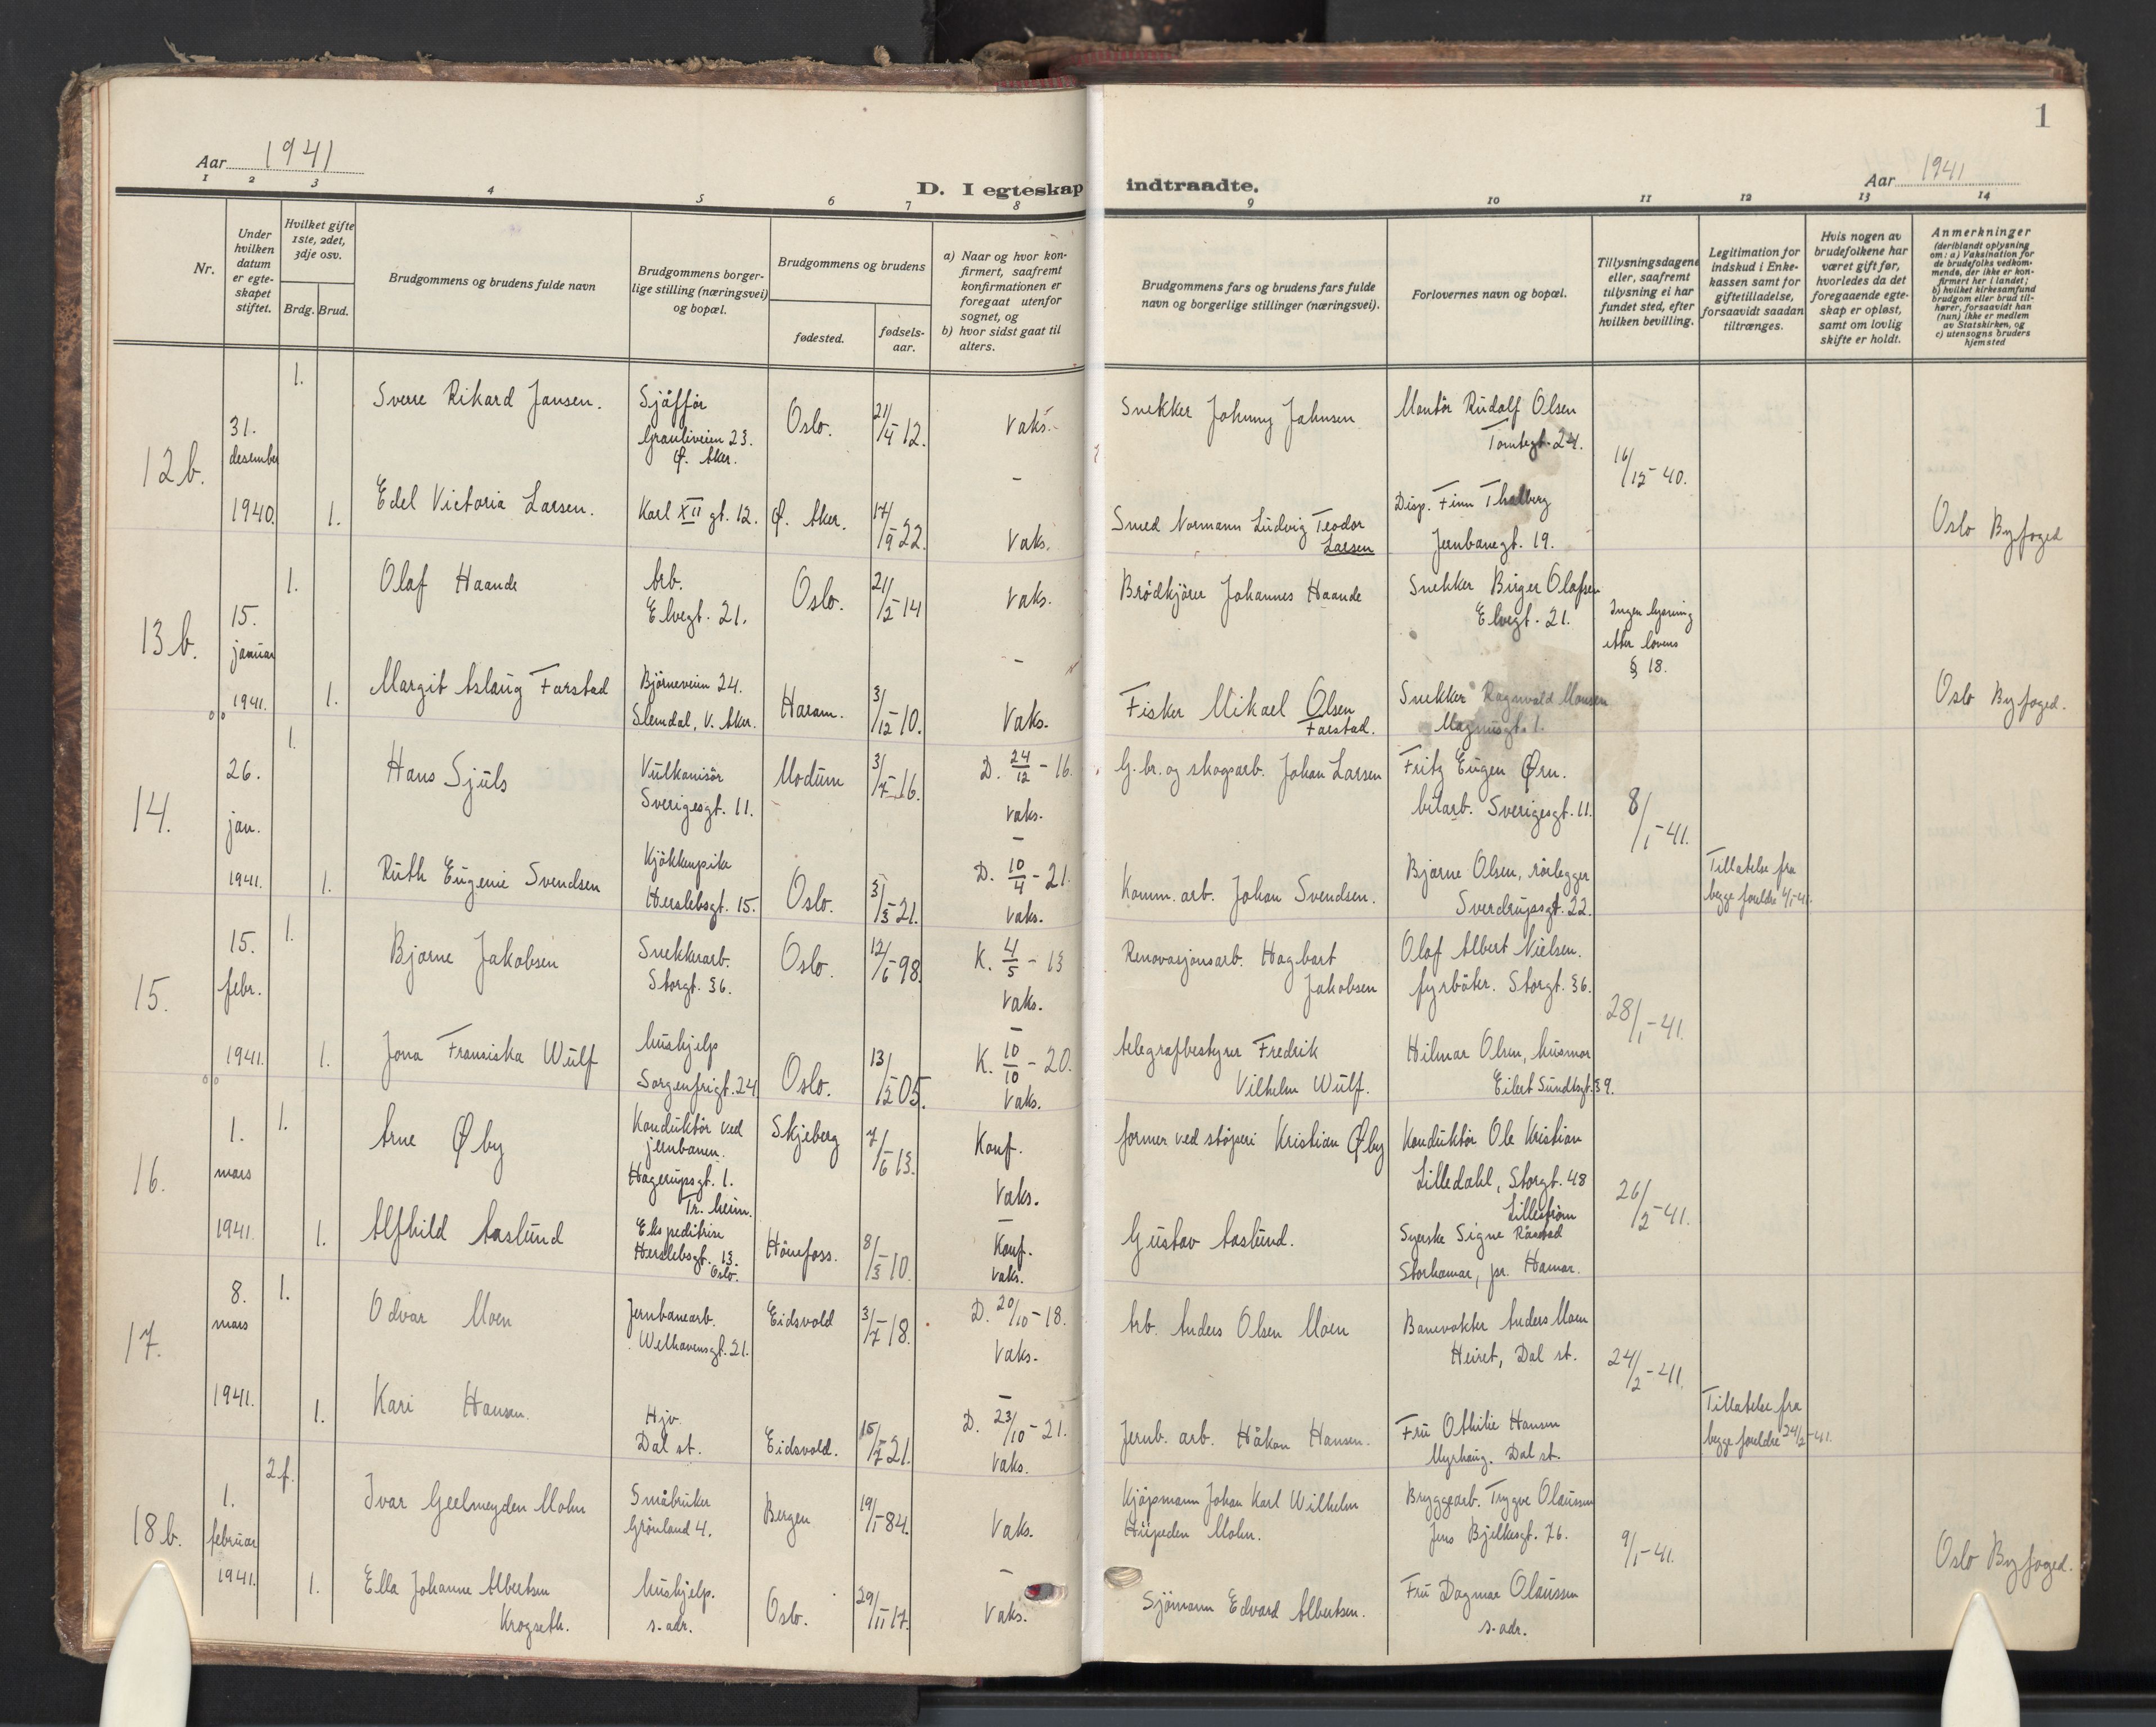 Aar 1941
D. I egteskap indtraadte.
1
Aar 1941
1 2 3 4 5 6 7 8 9 10 11 12 13 14
Nr.
Under hvilken datum er egteskapet stiftet.
Hvilket gifte 1ste, 2det, 3dje osv.
Brdg. Brud.
Brudgommens og brudens fulde navn
Brudgommens borgerlige stilling (næringsvei) og bopæl.
Brudgommens og brudens
fødested.
fødselsaar.
a) Naar og hvor konfirmert, saafremt konfirmationen er foregaat utenfor sognet, og
b) hvor sidst gaat til alters.
Brudgommens fars og brudens fars fulde navn og borgerlige stillinger (næringsvei).
Forlovernes navn og bopæl.
Tillysningsdagene eller, saafremt tillysning ei har fundet sted, efter hvilken bevilling.
Legitimation for indskud i Enkekassen samt for giftetilladelse, forsaavidt saadan tiltrænges.
Hvis nogen av brudefolkene har været gift før, hvorledes da det foregaaende egteskap er opløst, samt om lovlig skifte er holdt.
Anmerkninger
(deriblandt oplysning om: a) Vaksination for de brudefolks vedkommende, der ikke er konfirmert her i landet; b) hvilket kirkesamfund brudgom eller brud tilhører, forsaavidt han (hun) ikke er medlem av Statskirken, og c) utensogns bruders hjemsted
12b. 31. desember 1940. 1. Sverre Rikard Jansen. Sjåffør Grauliveien 23. Ø. Aker. Oslo. 21/4-12. Vaks. Snekker Johnny Jahnsen Montør Rudolf Olsen Tomtegt. 24. 16/12-40.
1. Edel Victoria Larsen. Karl XII gt. 12. Ø. Aker. 17/9-22. Vaks. Smed Normann Ludvig Teodor Larsen Disp. Finn Thalberg Jernbanegt. 19. Oslo Byfoged
13b. 15. januar 1941. 1. Olaf Haande Arb. Elvegt. 21. Oslo. 21/2-14 Vaks. Brødkjører Johannes Haande Snekker Birger Olafsen Elvegt. 21. Ingen lysning etter lovens § 18.
1. Margit Aslaug Farstad Bjørneveien 24. Slemdal, V. Aker. Haram. 3/12-10. Vaks. Fisker Mikael Olsen Farstad. Snekker Ragnvald Monsen Magnusgt. 1. Oslo Byfoged.
14. 26. jan. 1941. 1. Hans Sjuls Vulkanisør Sverigesgt. 11. Modum 3/7-16. D. 24/12-16. Vaks. G.br. og skogsarb. Johan Larsen Fritz Eugen Ørn. bilarb. Sverigesgt. 11. 8/1-41.
1. Ruth Eugenie Svendsen Kjøkkenpike Herslebsgt. 15. Oslo. 3/3-21. D. 10/4-21. Vaks. Komm. arb. Johan Svendsen. Bjarne Olsen, rørlegger Sverdrupsgt. 22. Tillatelse fra begge foreldre 4/1-41.
15. 15. febr. 1941. 1. Bjarne Jakobsen Snekkerarb. Storgt. 36. Oslo. 12/6-98. K. 4/5-13 Vaks. Renovasjonsarb. Hagbart Jakobsen Olaf Albert Nielsen. fyrbøter. Storgt. 36. 28/1-41.
1. Jona Fransiska Wulf hushjelp Sorgenfrigt. 24 Oslo. 13/12-05. K. 10/10-20. Vaks. telegrafbestyrer Fredrik Vilhelm Wulf. Hilmar Olsen, husmor Eilert Sundtsgt. 39.
16. 1. mars 1941. 1. Arne Øby Konduktør ved jernbanen. Hagerupsgt. 1. Tr.heim. Skjeberg 7/6-13. Konf. Vaks. former ved støperi Kristian Øby Konduktør Ole Kristian Lilledahl, Storgt. 48 Lillestrøm 26/2-41.
1. Alfhild Aaslund Ekspeditrise Herslebsgt. 13. Oslo. Hønefoss. 8/3-10. Konf. Vaks. Gustav Aaslund. Syerske Signe Råstad Storhamar, pr. Hamar.
17. 8. mars 1941. 1. Odvar Moen Jernbanearb. Welhavensgt. 21. Eidsvold 3/7-18. D. 20/10-18. Vaks. Arb. Anders Olsen Moen Banevokter Anders Moen Heiret, Dal st. 24/2-41.
1. Kari Hansen. Hjv. Dal st. Eidsvold. 15/7-21. D. 23/10-21. Vaks. Jernb. arb. Håkon Hansen. Fru Othilie Hansen Myrhaug. Dal st. Tillatelse fra begge foreldre 24/2-41.
18b. 1. februar 1941. 2f. Ivar Geelmeyden Mohn Småbruker Grønland 4. Bergen 19/1-84. Vaks. Kjøpmann Johan Karl Wilhelm Hüpeden Mohn. Bryggearb. Trygve Olaussen Jens Bjelkesgt. 76. 9/1-41.
1. Ella Johanne Albertsen Krogseth. hushjelp. s. adr. Oslo. 29/11-17. Vaks. Sjømann Edvard Albertsen. Fru Dagmar Olaussen s. adr. Oslo Byfoged.